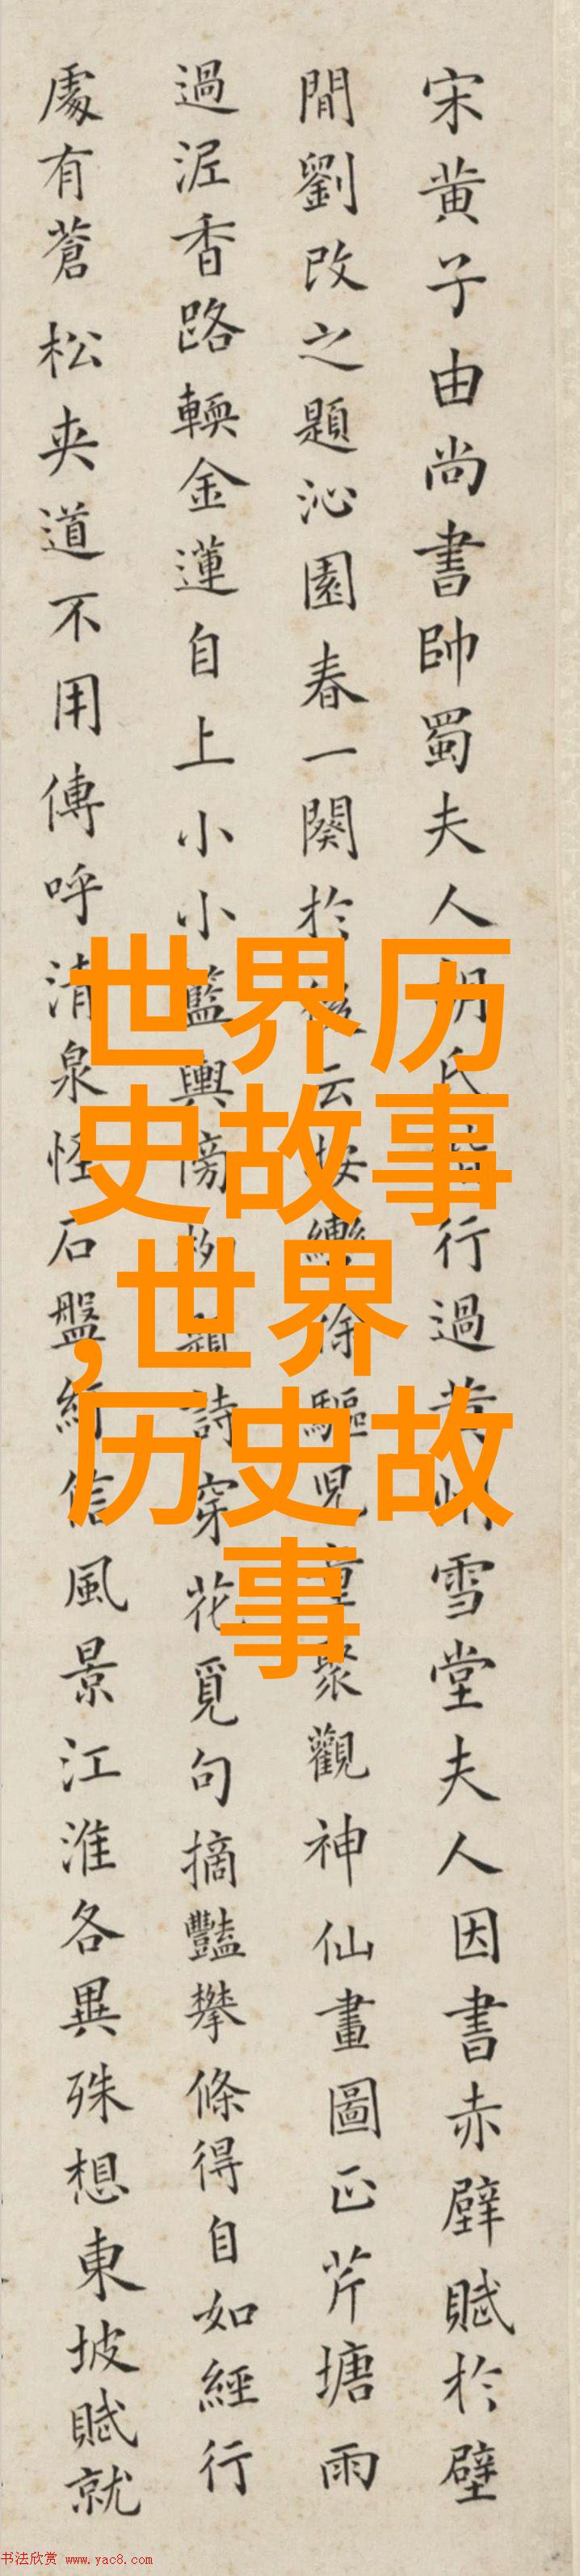 宋黄子由尚書帥蜀夫人胡氏行過黄州雪堂夫人因書赤壁賦於壁
間劉改之題沁園春一闋於後云按轡徐驅児童聚觀神仙畫圖正芹塘雨
過泥香路輭金蓮自上小小籃輿傍柳題詩穿花覓句摘豔攀條得自如經行
處有蒼松夾道不用傳呼清泉怪石盤紆信風景江淮各異殊想東坡賦就
世界历
史故事
,世界
历史故
事
书法欣赏 www.yac8.com